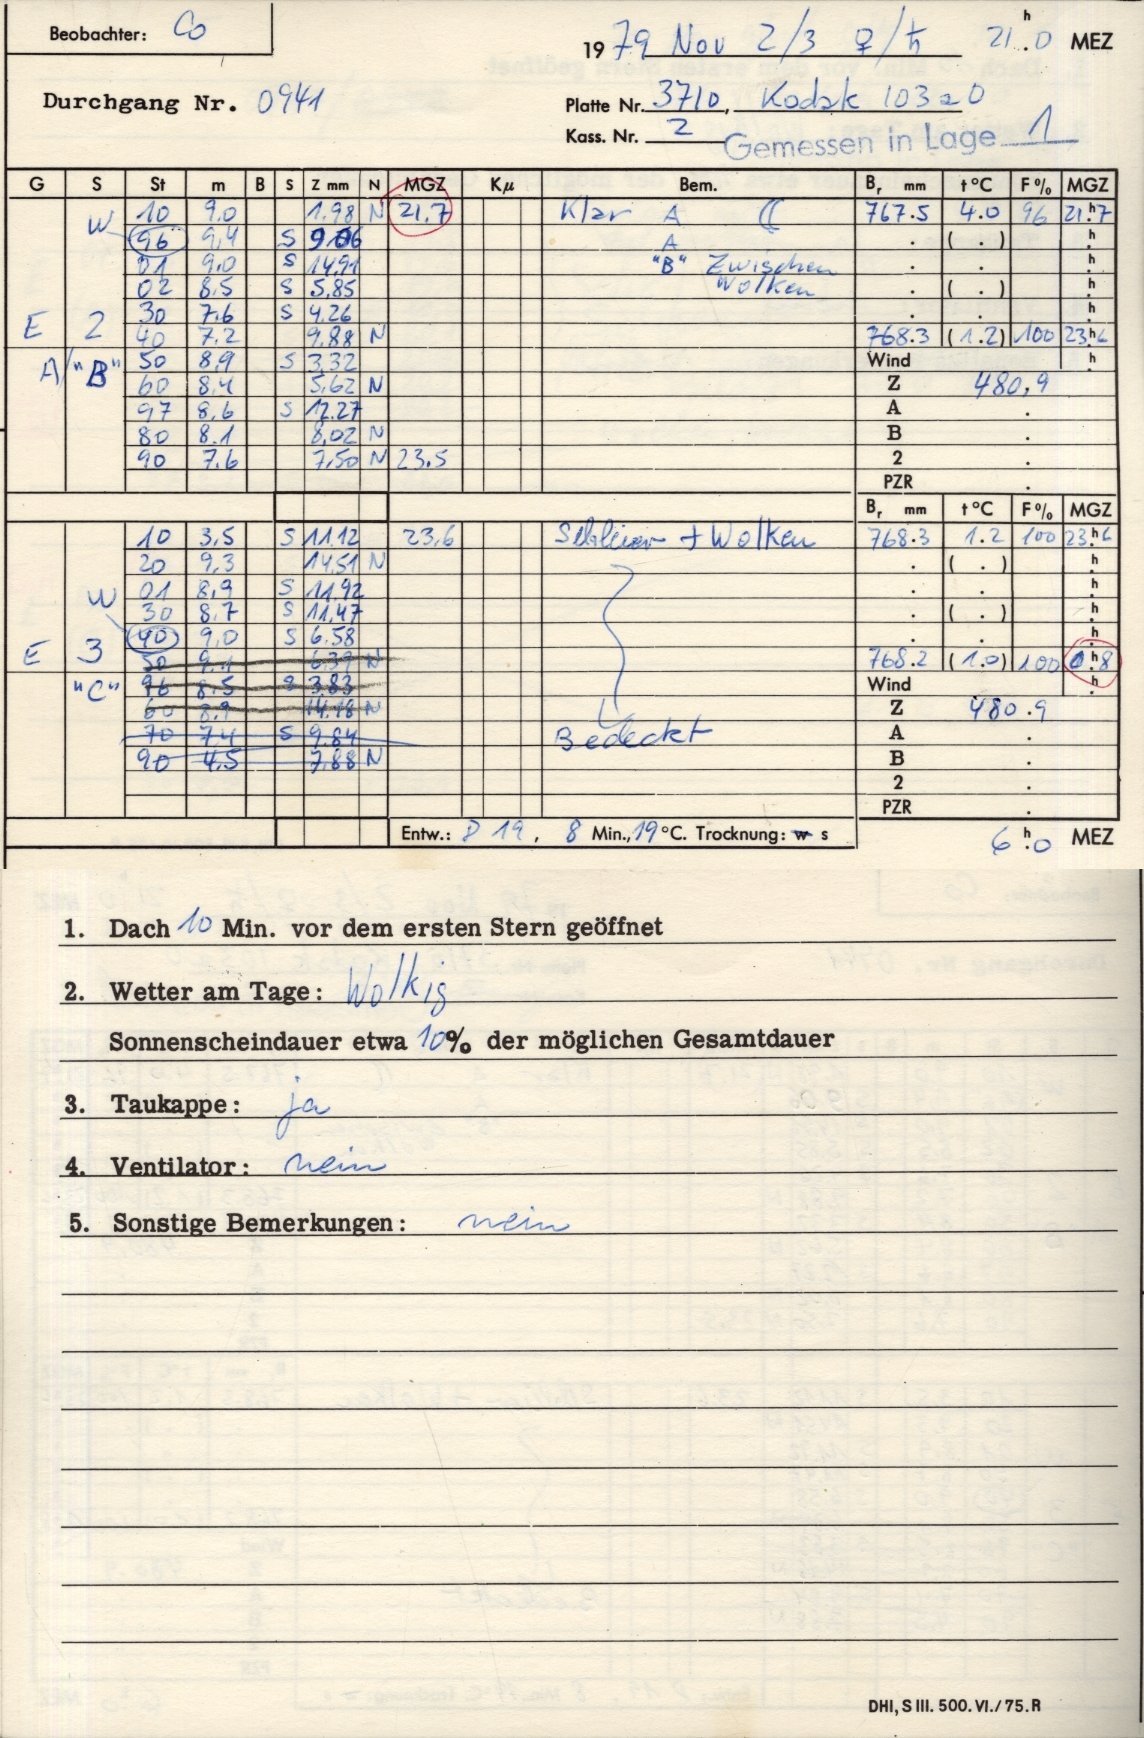 Beobachter: Co
1979 Nov 2/3 ♀/♄ 21ʰ.0 MEZ
Durchgang Nr. 0941
Platte Nr. 3710, Kodak 103a0
Kass. Nr. 2
Gemessen in Lage 1
G S St m B S Z mm N MGZ Kμ Bem. Br mm t°C F% MGZ
10 9.0 1.98 N 21,7 Klar A ☾ 767.5 4.0 96 21ʰ.7
W 96 9,4 S 9.06 A . ( . ) ʰ.
01 9.0 S 14,91 "B" Zwischen . . ʰ.
02 8.5 S 5,85 Wolken . ( . ) ʰ.
E 2 30 7.6 S 4.26 . . ʰ.
40 7.2 9.88 N 768.3 (1.2) 100 23ʰ6
A/"B" 50 8,9 S 3,32 Wind ʰ.
60 8,4 5,62 N Z 480,9
97 8,6 S 12.27 A .
80 8.1 8,02 N B .
90 7.6 7,50 N 23.5 2 .
PZR .
Br mm t°C F% MGZ
10 3,5 S 11,12 23,6 Schleier + Wolken 768.3 1.2 100 23ʰ6
20 9,3 14,51 N . ( . ) ʰ.
W 01 8,9 S 11,92 . . ʰ.
30 8,7 S 11,47 . ( . ) ʰ.
40 9,0 S 6.58 . . ʰ.
E 3 50 9,1 6,39 N 768.2 (1.0) 100 0ʰ.8
"C" 76 8,5 S 3.83 Wind ʰ.
60 8,9 14,18 N Z 480.9
70 7,4 S 9,84 Bedeckt A .
90 4,5 7,88 N B .
2 .
PZR .
Entw.: D 19, 8 Min., 19°C. Trocknung: w s
6ʰ.0 MEZ
1. Dach 10 Min. vor dem ersten Stern geöffnet
2. Wetter am Tage: Wolkig
Sonnenscheindauer etwa 10% der möglichen Gesamtdauer
3. Taukappe: ja
4. Ventilator: nein
5. Sonstige Bemerkungen: nein
DHI, S III. 500. VI./75. R